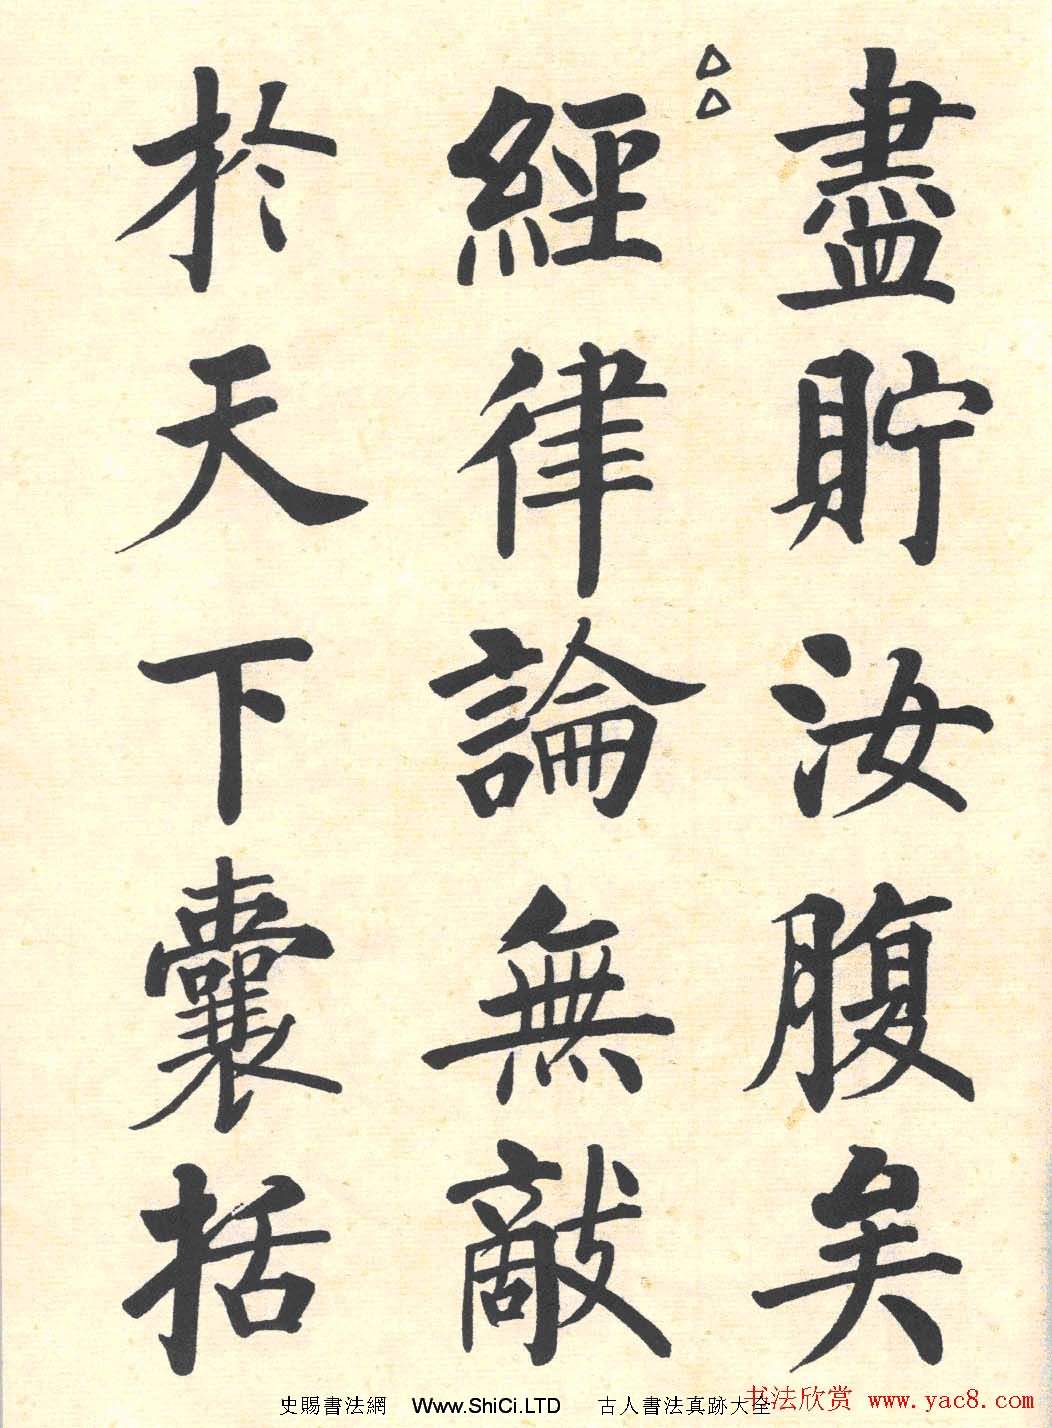 盡貯汝腹矣
經律論無敵
於天下囊括
史賜書法網 Www.ShiCi.LTD 古人書法真跡大全
书法欣赏 www.yac8.com